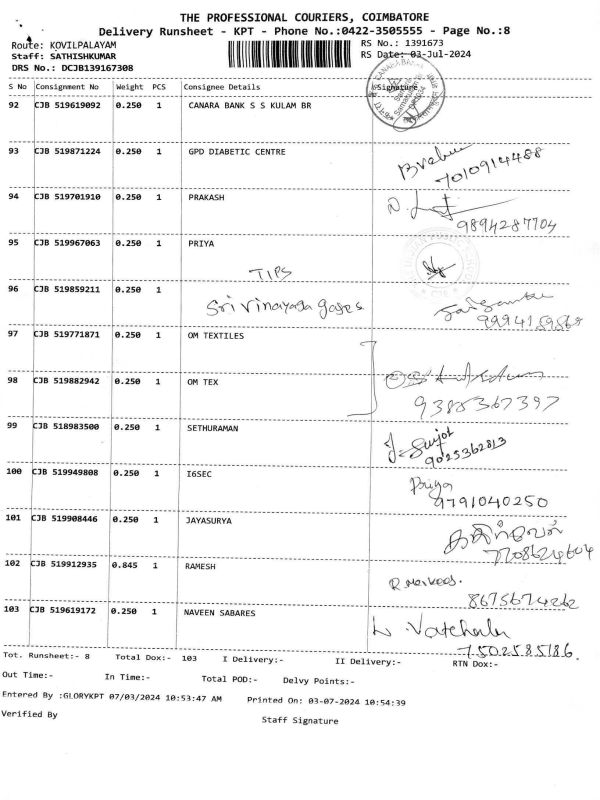 THE PROFESSIONAL COURIERS, COIMBATORE
Delivery Runsheet - KPT - Phone No.:0422-3505555 - Page No.:8
Route: KOVILPALAYAM RS No.: 1391673
Staff: SATHISHKUMAR RS Date: 03-Jul-2024
DRS No.: DCJB139167308
S No Consignment No Weight PCS Consignee Details Signature
92 CJB 519619092 0.250 1 CANARA BANK S S KULAM BR
93 CJB 519871224 0.250 1 GPD DIABETIC CENTRE
7010914488
94 CJB 519701910 0.250 1 PRAKASH
9894287704
95 CJB 519967063 0.250 1 PRIYA
TIPS
96 CJB 519859211 0.250 1
Sri Vinayaga
97 CJB 519771871 0.250 1 OM TEXTILES
98 CJB 519882942 0.250 1 OM TEX
9388367397
99 CJB 518983500 0.250 1 SETHURAMAN
9025362813
100 CJB 519949808 0.250 1 I6SEC Priya
9791040250
101 CJB 519908446 0.250 1 JAYASURYA
7708624604
102 CJB 519912935 0.845 1 RAMESH
8675674262
103 CJB 519619172 0.250 1 NAVEEN SABARES
7502585186.
Tot. Runsheet:- 8 Total Dox:- 103 I Delivery:- II Delivery:- RTN Dox:-
Out Time:- In Time:- Total POD:- Delvy Points:-
Entered By :GLORYKPT 07/03/2024 10:53:47 AM Printed On: 03-07-2024 10:54:39
Verified By Staff Signature